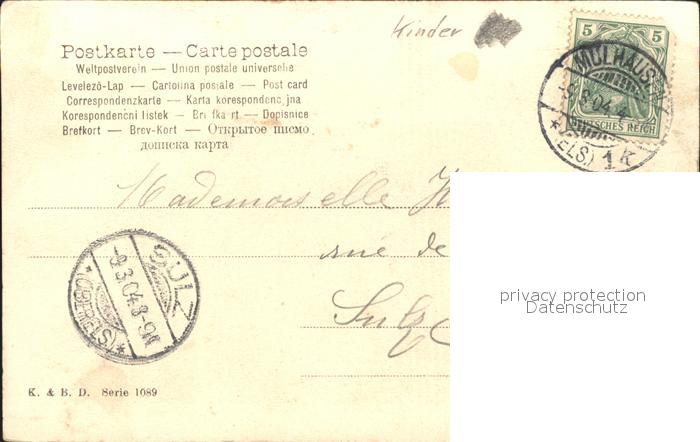 Kinder
Postkarte — Carte postale
Weltpostverein — Union postale universelle
Levelezö-Lap — Cartolina postale — Post card
Correspondenzkarte — Karta korespondencyjna
Korespondenční listek — Brefkort — Dopisnice
Brefkort — Brev-Kort — Открытое письмо
дописка карта
5 5
DEUTSCHES REICH
MÜLHAUSEN
3.04.
*(ELS) 1k
Mademoiselle
rue de
Sulz
SULZ
-9.3.04.8-9N.
*(OBERELS)*
privacy protection
Datenschutz
K. & B. D. Serie 1089